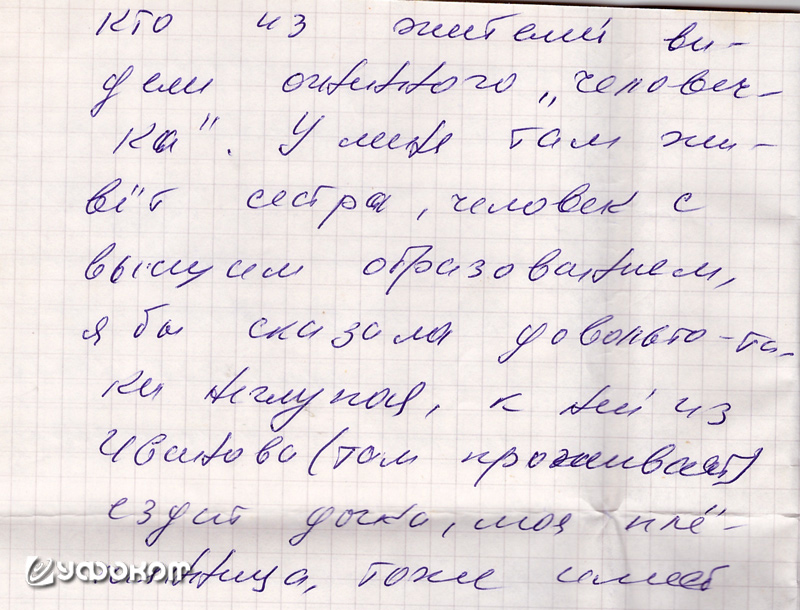 кто из жителей ви-
дели огненного „человеч-
ка". У меня там жи-
вёт сестра, человек с
высшим образованием,
я бы сказала довольно-та-
ки неглупая, к ней из
Иванова (там проживает)
ездит дочка, моя племя-
нница, тоже имеет
УФОКОМ